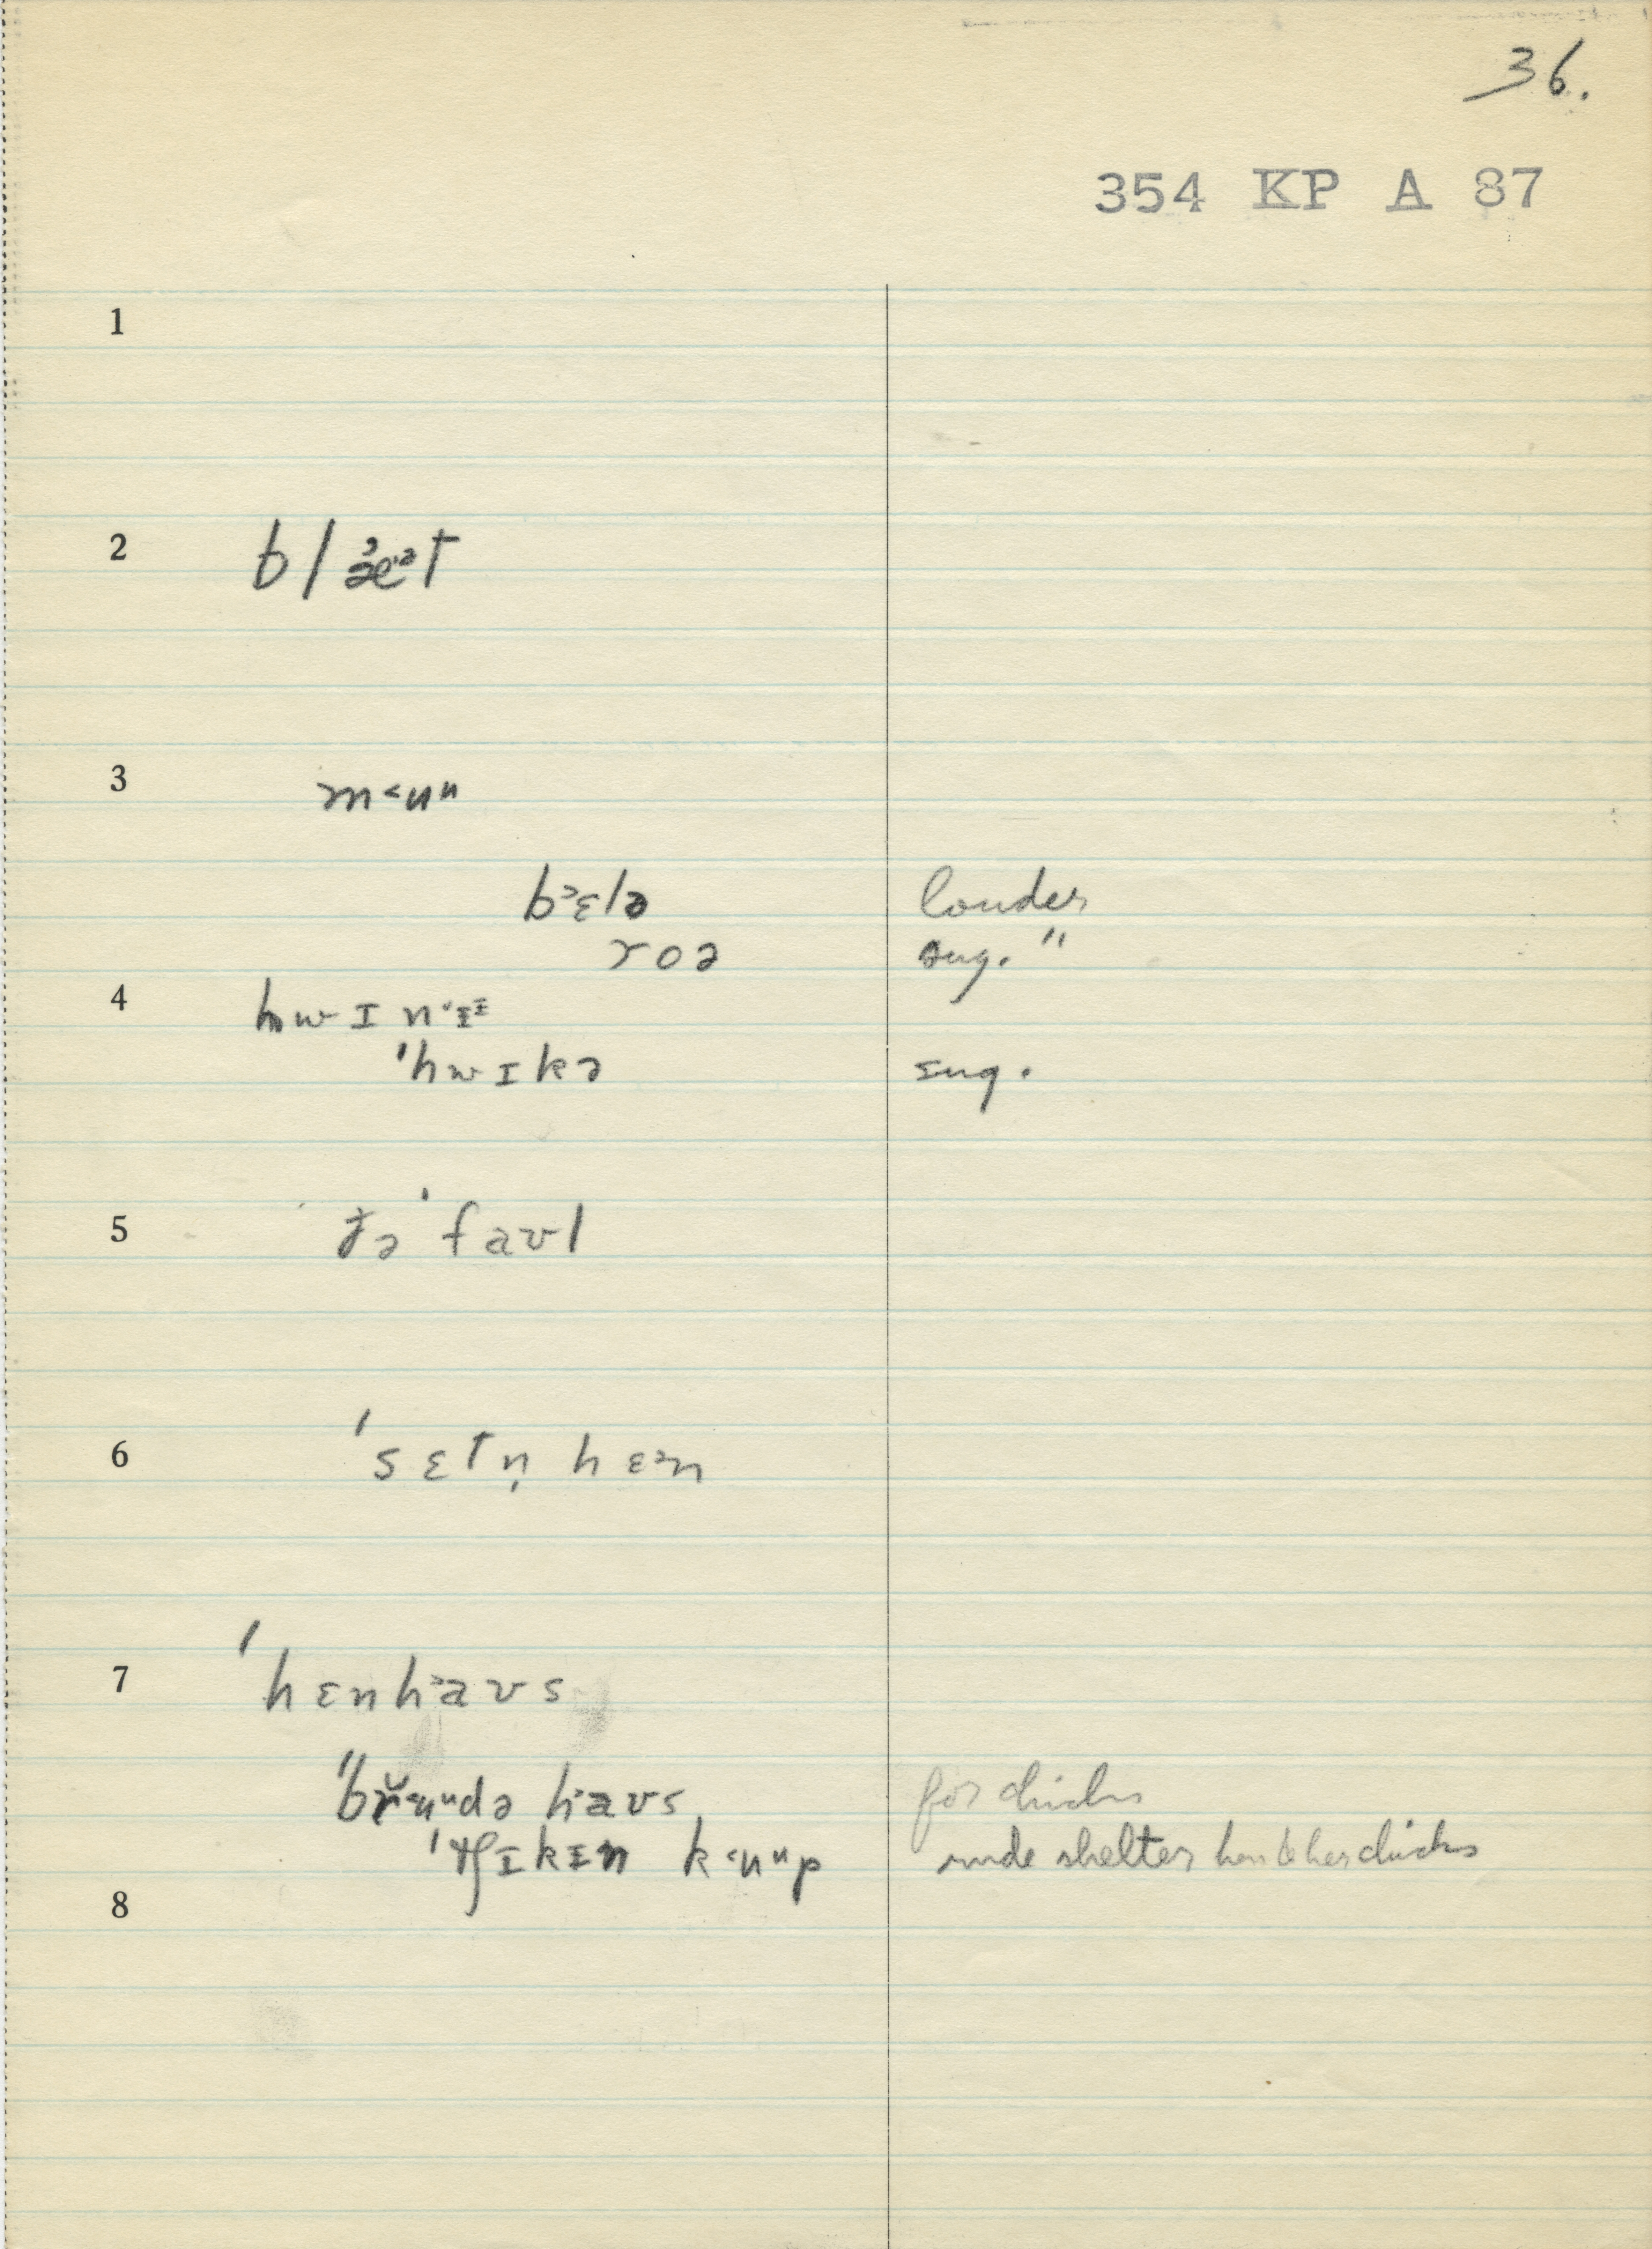 36.
354 KP A 87
1
2 blæᵊt
3 m˂uᵘ
bᵊɛlə louder
roə sug. "
4 hwɪn˂ɪᶦ
ˈhwɪkə sug.
5 ðə ˈfaʊl
6 ˈsɛtn̩ hɛᵊn
7 ˈhɛnhaʊs
ˈbr˂uᵘdə haʊs for chicks
ˈtʃɪkɪn k˂uᵘp rude shelter hen & her chicks
8